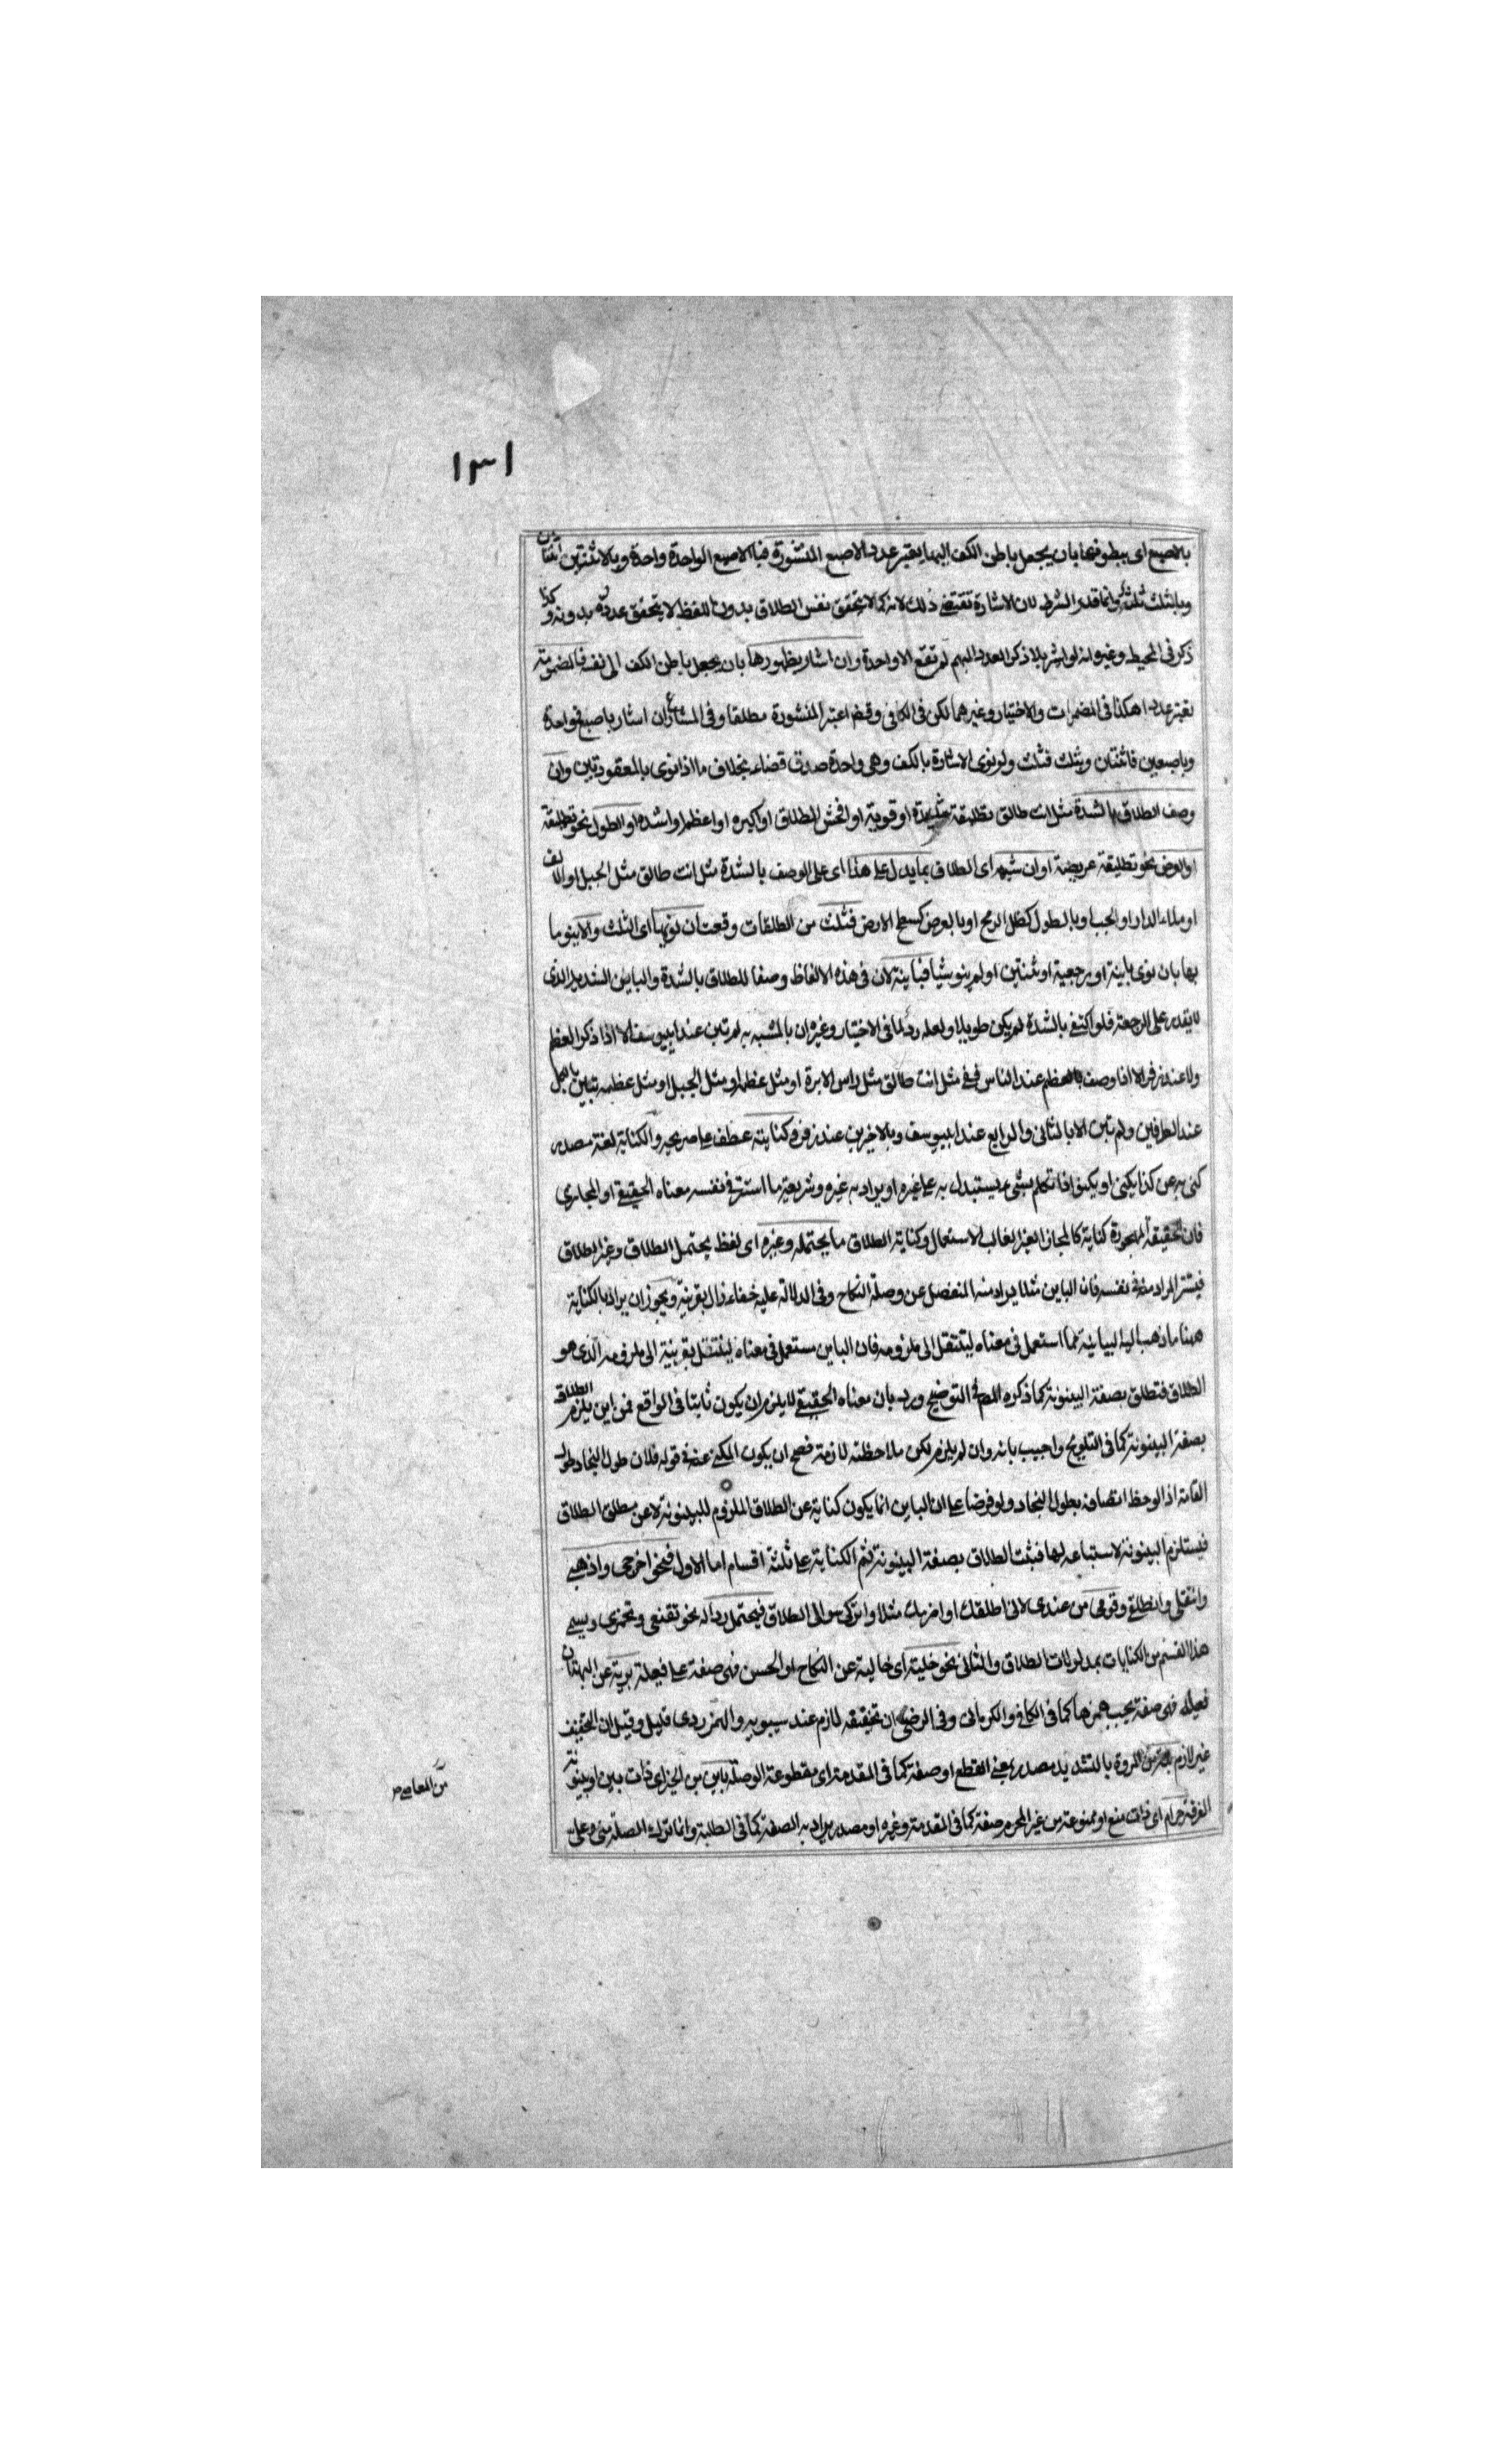 ١٣١
بالاصبع اى ببطونها بان يجعل باطن الكف اليها يعتبر عدد الاصبع المنشورة فبالاصبع الواحدة واحدة وبالاثنتين اثنتان
وبالثلث ثلثة وانما قدر الشرط لان الاشارة تقتضى ذلك لانه كما لا يتحقق نفس الطلاق بدون اللفظ لا يتحقق عدده بدونه وكذا
ذكر فى المحيط وغيره انه لو اشر بلا ذكر العدد المبهم لم تقع الا واحدة وان اشار بظهورها بان يجعل باطن الكف الى نفسه فالمضمومة
يعتبر عددا هكذا فى المضمرات والاختيار وغيرهما لكن فى الكافى وقيل اعتبر المنشورة مطلقا وفى المشارع ان اشار باصبع فواحدة
وباصبعين فاثنتان وبثلث فثلث ولو نوى الاشارة بالكف وهى واحدة صدق قضاء بخلاف ما اذا نوى بالمعقودتين وان
وصف الطلاق بالشدة مثل انت طالق تطليقة شديدة او قوية او افحش الطلاق او اكبره او اعظم او اشده او الطول نحو تطليقة
او العرض نحو تطليقة عريضة او ان شبه اى الطلاق بما يدل على هذا اى على الوصف بالشدة مثل انت طالق مثل الجبل او الالف
او ملء الدار او الجب او بالطول كظل الرمح او بالعرض كسطح الارض فثلث من الطلقات وقعت ان نويها اى الثلث والا ينو ما
بها بان نوى باينة او رجعية او ثنتين او لم ينو شيا فباينة لان فى هذه الالفاظ وصفا للطلاق بالشدة والباين الشديد الذى
لا يقدر على الرجعة فلو اكتفى بالشدة لم يكن طويلا ولعله رد لما فى الاختيار وغيره ان بالمشبه به لم تبن عند ابيوسف الا اذا ذكر العظم
ولا عند زفر الا اذا وصف بالعظم عند الناس ففى مثل انت طالق مثل راس الابرة او مثل عظمه او مثل الجبل او مثل عظمه تبين بالكل
عند الطرفين ولم تبن الا بالثانى والرابع عند ابيوسف وبالاخيرين عند زفر وكنايته عطف على صريحه والكناية لغة مصدر
كنى به عن كذا يكنى او يكنو اذا تكلم بشىء يستبدل به على غيره او يراد به غيره وشريعة ما استتر فى نفسه معناه الحقيقى او المجازى
فان الحقيقة المهجورة كناية كالمجاز الغير الغالب الاستعمال وكناية الطلاق ما يحتمله وغيره اى لفظ يحتمل الطلاق وغير الطلاق
فيستتر المراد منه فى نفسه فان الباين مثلا يراد منه المنفصل عن وصلة النكاح وفى الدلالة عليه خفاء زال بقرينة ويجوز ان يراد بالكناية
ههنا ما ذهب اليه البيانية مما استعمل فى معناه لينتقل الى ملزومه فان الباين مستعمل فى معناه لينتقل بقرينة الى ملزومه الذى هو
الطلاق فتطلق بصفة البينونة كما ذكره المص فى التوضيح ورد بان معناه الحقيقى لا يلزم ان يكون ثابتا فى الواقع فمن اين يلزم الطلاق
بصفة البينونة كما فى التلويح واجيب بانه وان لم يلزم لكن ملاحظته لازمة فصح ان يكون المكنى عنه فى قوله فلان طول النجاد طول
القامة اذا لوحظ اتصافه بطول النجاد ولو فرضا على ان الباين انما يكون كناية عن الطلاق الملزوم للبينونة لا عن مطلق الطلاق
فيستلزم البينونة لاستتباعه لها فيثبت الطلاق بصفة البينونة ثم الكناية على ثلثة اقسام اما الاول فنحو اخرجى واذهبى
وانتقلى وانطلقى وقومى من عندى لانى اطلقك او اضربك مثلا واتركى سوال الطلاق فيحتمل رداله نحو تقنعى وتخمرى ويسمى
هذا القسم من الكنايات بمدلولات الطلاق والثانى نحو خلية اى خالية عن النكاح او الحسن فهى صفة على فعيلة برية عن البهتان
فعيلة فهى صفة يجب همزها كما فى الكافى والكرمانى وفى الرضى ان تخفيفه لازم عند سيبويه والهمز ردى قليل وقيل ان التخفيف
غير لازم بتة من المروة بالتشديد مصدر بمعنى القطع او صفة كما فى المقدمة اى مقطوعة الوصلة باين من الخبر اى ذات بين او بينونة
الفرقة حرام اى ذات منع او ممنوعة من غير المحرم صفة كما فى المقدمة وغيره او مصدر يراد به الصفة كما فى الطلبة وانما ترك الصلة منى وعلى
من المعاصى صح